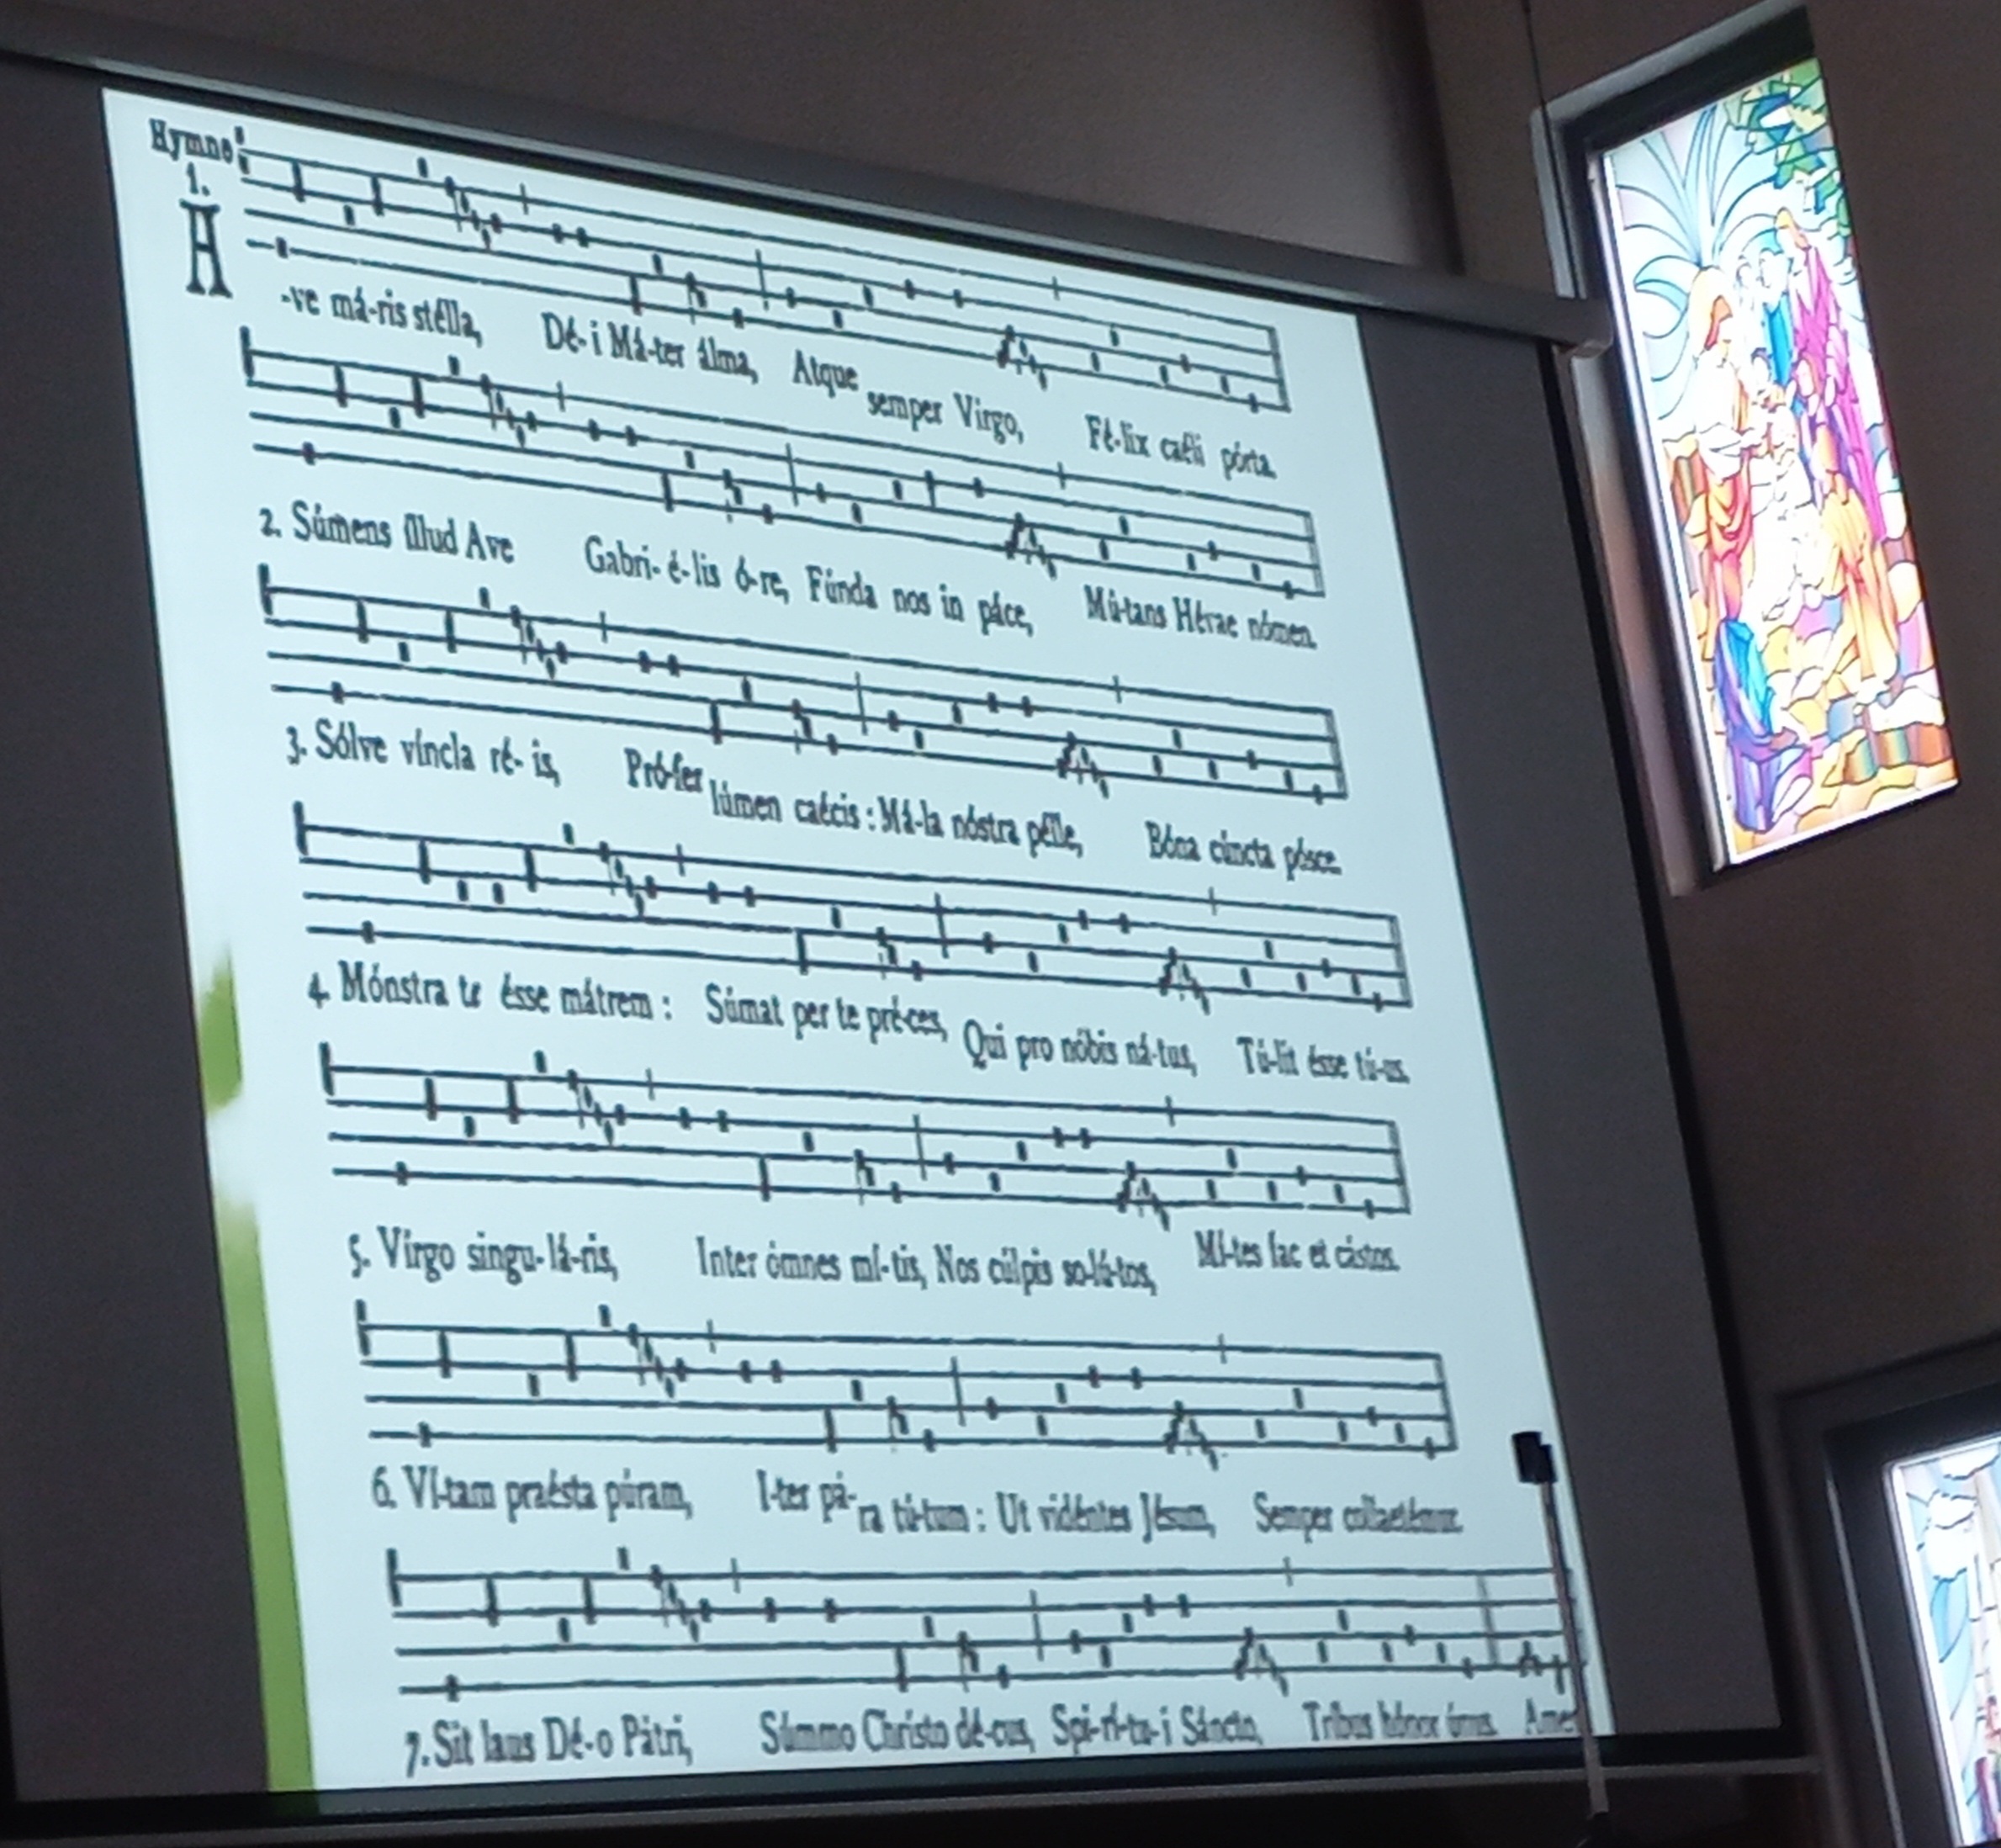 Hymne
1.
A
-ve má-ris stélla, Dé-i Má-ter álma, Atque semper Virgo, Fé-lix caéli pórta.
2. Súmens íllud Ave Gabri-é-lis ó-re, Fúnda nos in páce, Mú-tans Hévae nómen.
3. Sólve víncla ré-is, Pró-fer lúmen caécis : Má-la nóstra pélle, Bóna cúncta pósce.
4. Mónstra te ésse mátrem : Súmat per te pré-ces, Qui pro nóbis ná-tus, Tú-lit ésse tú-us.
5. Vírgo singu-lá-ris, Inter ómnes mí-tis, Nos cúlpis so-lú-tos, Mí-tes fac et cástos.
6. Ví-tam praésta púram, I-ter pá-ra tú-tum : Ut vidéntes Jésum, Semper collaetémur.
7. Sit laus Dé-o Pátri, Súmmo Chrísto dé-cus, Spi-rí-tu-i Sáncto, Tríbus hónor únus. Ame